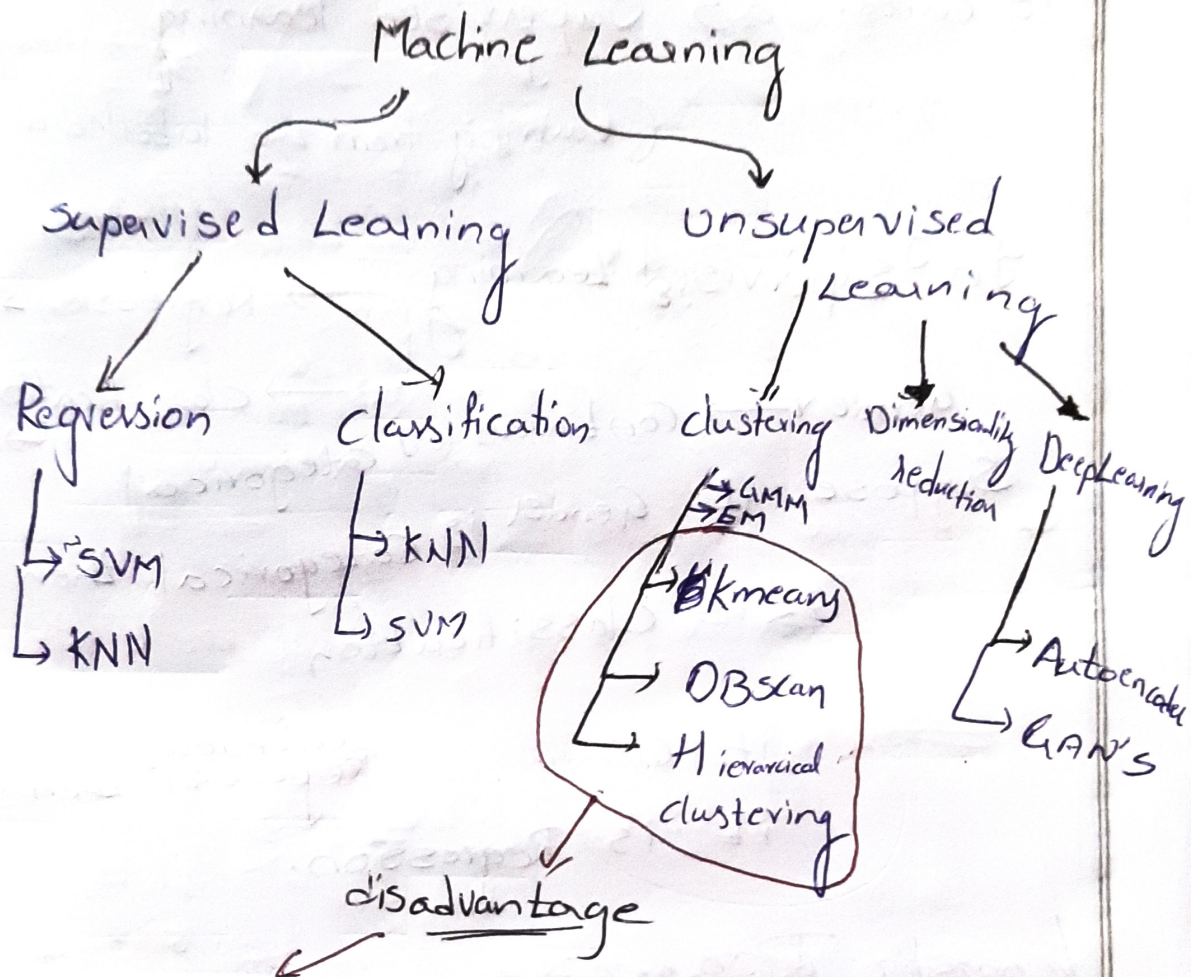 Machine Learning
Supervised Learning
Unsupervised
Learning
Regression
Classification
Clustering
Dimensionality
reduction
DeepLearning
GMM
EM
SVM
KNN
KNN
SVM
Kmeans
DBscan
Hierarcical
clustering
Autoencoder
GAN's
disadvantage